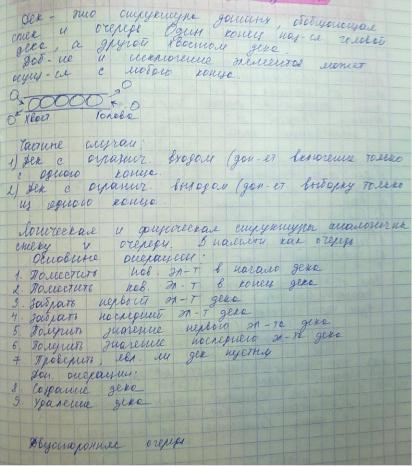 Дек - это структура данных, обобщающая
стек и очередь. Один конец наз-ся головой
дека, а другой хвостом дека.
Доб-ие и исключение элементов может
осущ-ся с любого конца.
Хвост Голова
Частные случаи:
1) Дек с огранич. входом (доп-ет включение только
с одного конца.
2) Дек с огранич. выходом (доп-ет выборку только
из одного конца.
Логическая и физическая структуры аналогичны
стеку и очереди. В памяти как очередь
Основные операции:
1. Поместить нов. эл-т в начало дека
2. Поместить нов. эл-т в конец дека
3. Забрать первый эл-т дека
4. Забрать последний эл-т дека
5. Получить значение первого эл-та дека
6. Получить значение последнего эл-та дека
7. Проверить, явл. ли дек пустым
Доп. операции:
8. Создание дека
9. Удаление дека
Двусторонняя очередь